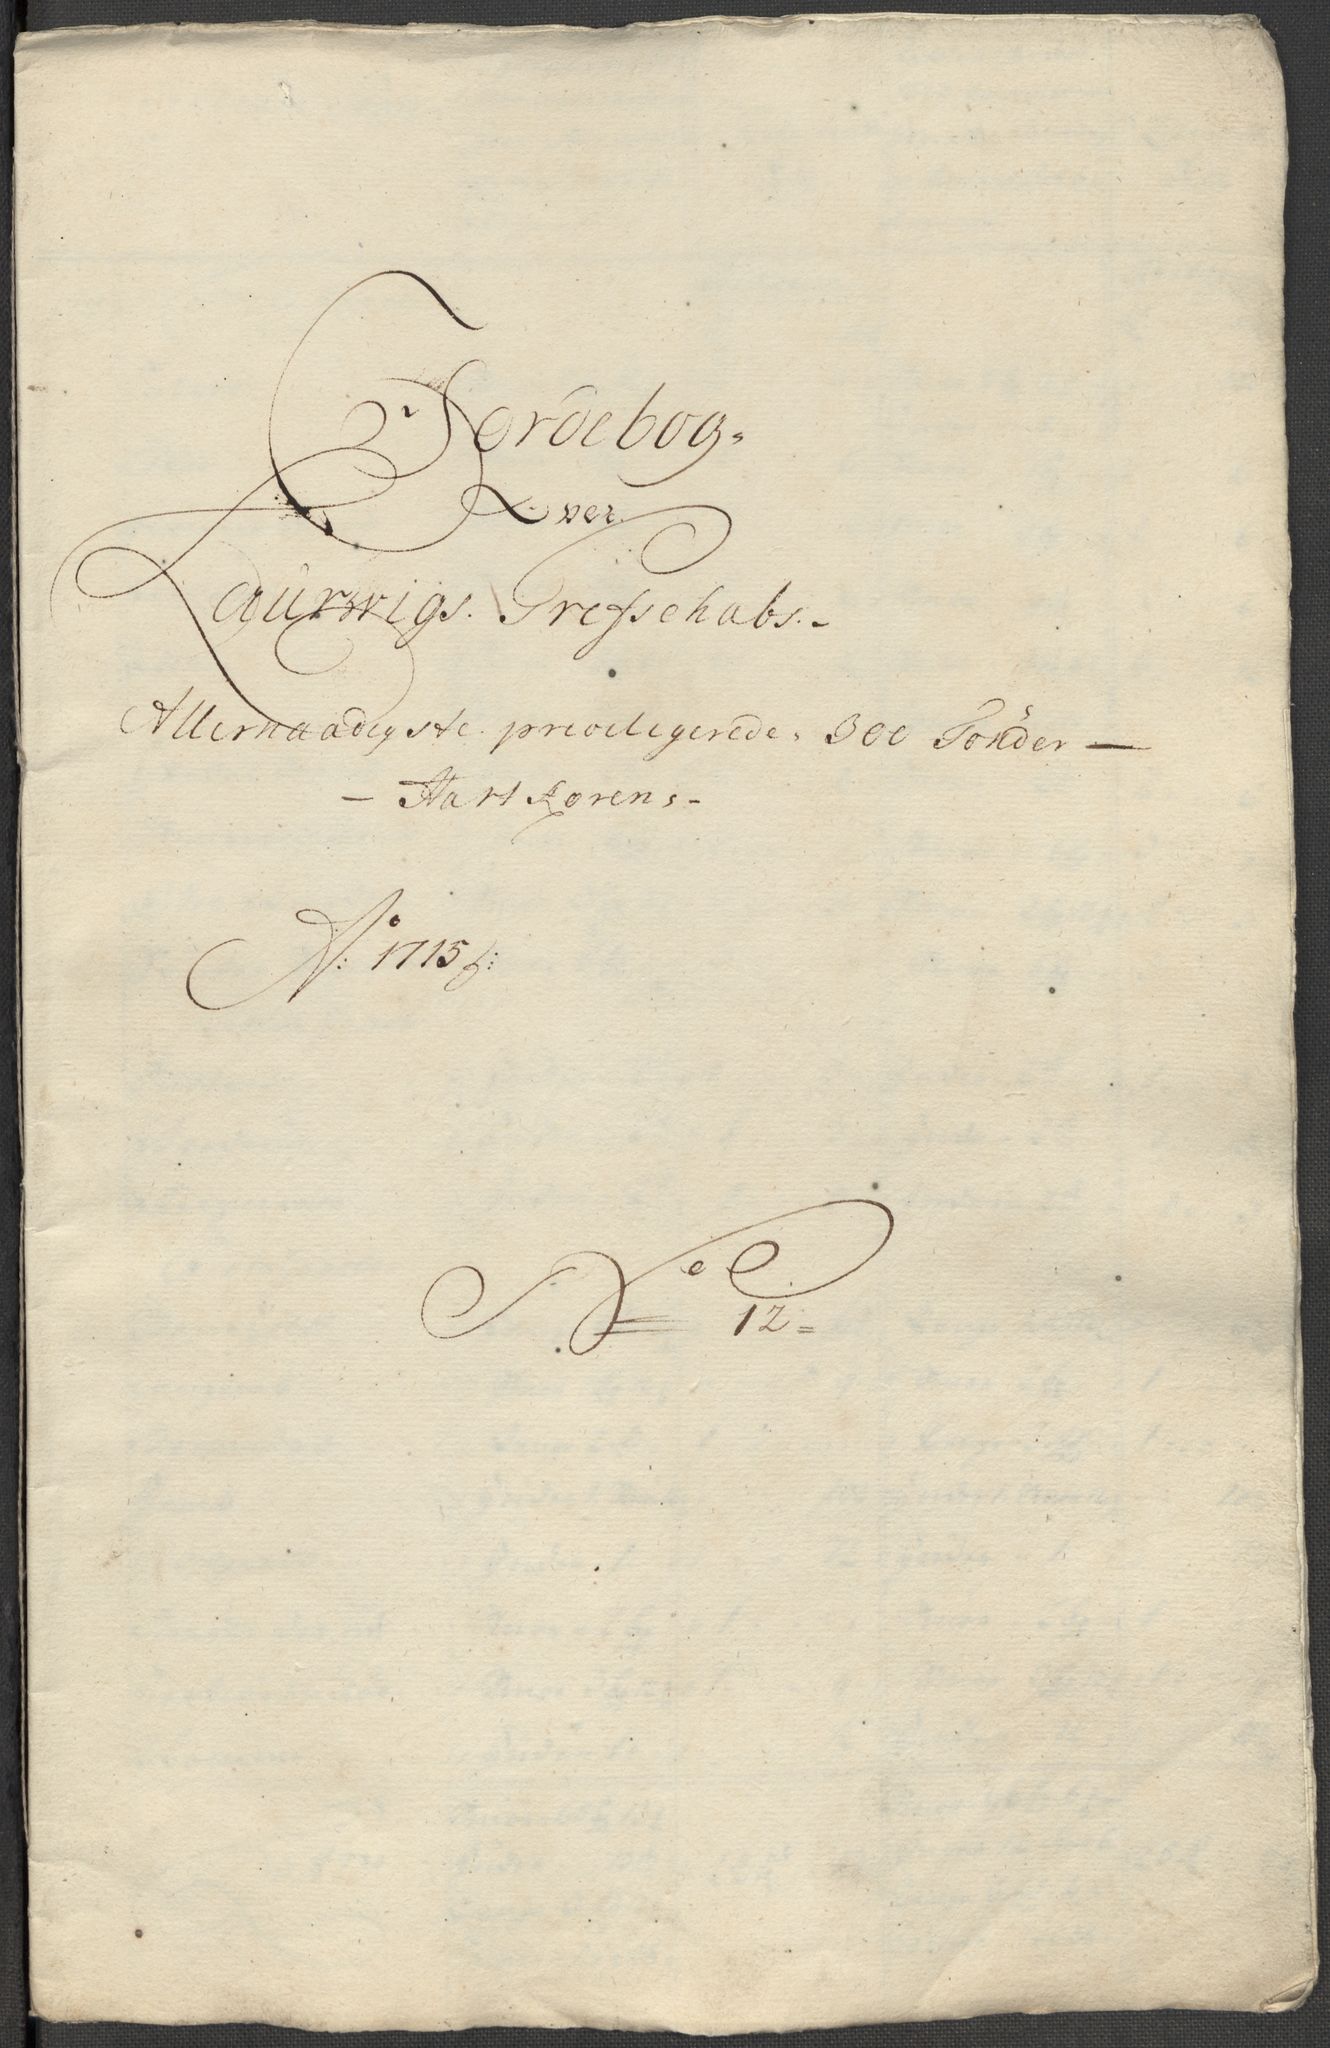 Jordebog
Over
Laurwigs Grefschabs.
Allernaadigste previlegerede 300 Tønder
Hart Korens
No: 1715
No 12